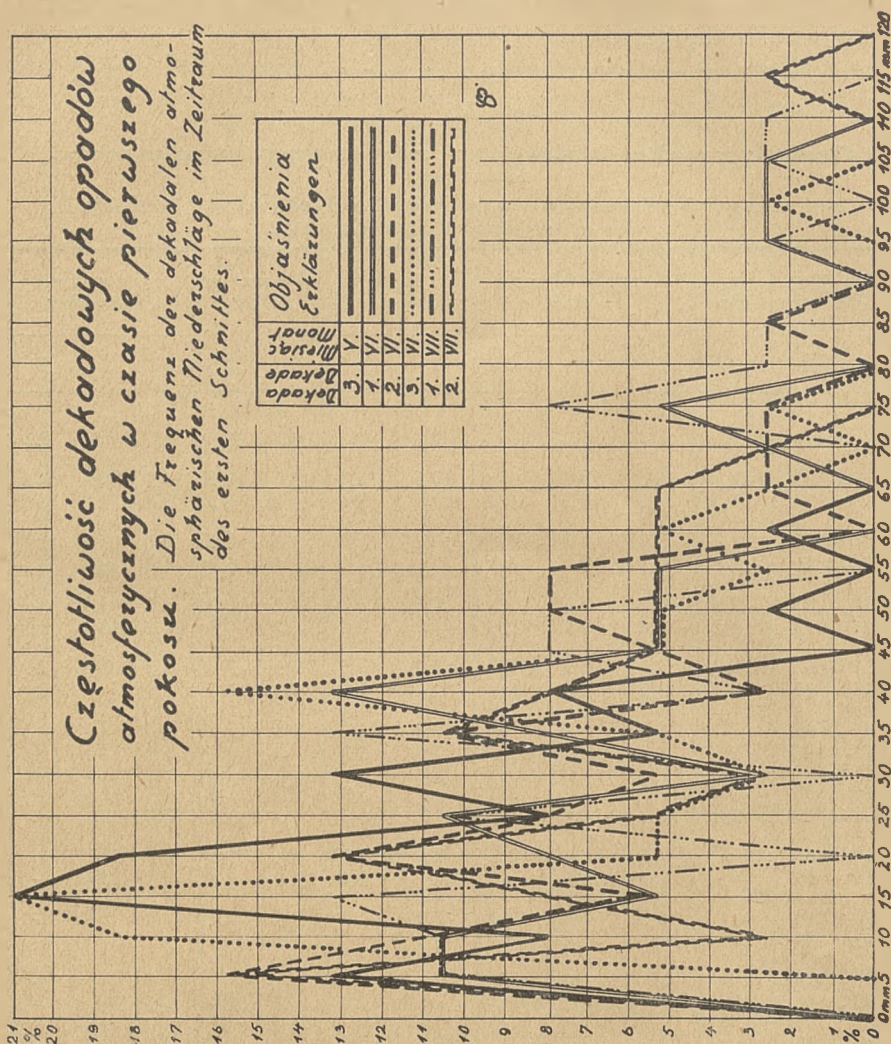 Częstotliwość dekadowych opadów
atmosferycznych w czasie pierwszego
pokosu. Die Frequenz der dekadalen atmo-
sphärischen Niederschläge im Zeitraum
des ersten Schnittes.
Dekada Dekade Miesiąc Monat Objaśnienia Erklärungen
3. V.
1. VI.
2. VI.
3. VI.
1. VII.
2. VII.
21
%
20
19
18
17
16
15
14
13
12
11
10
9
8
7
6
5
4
3
2
1
%
0
0mm 5 10 15 20 25 30 35 40 45 50 55 60 65 70 75 80 85 90 95 100 105 110 115 mm 120